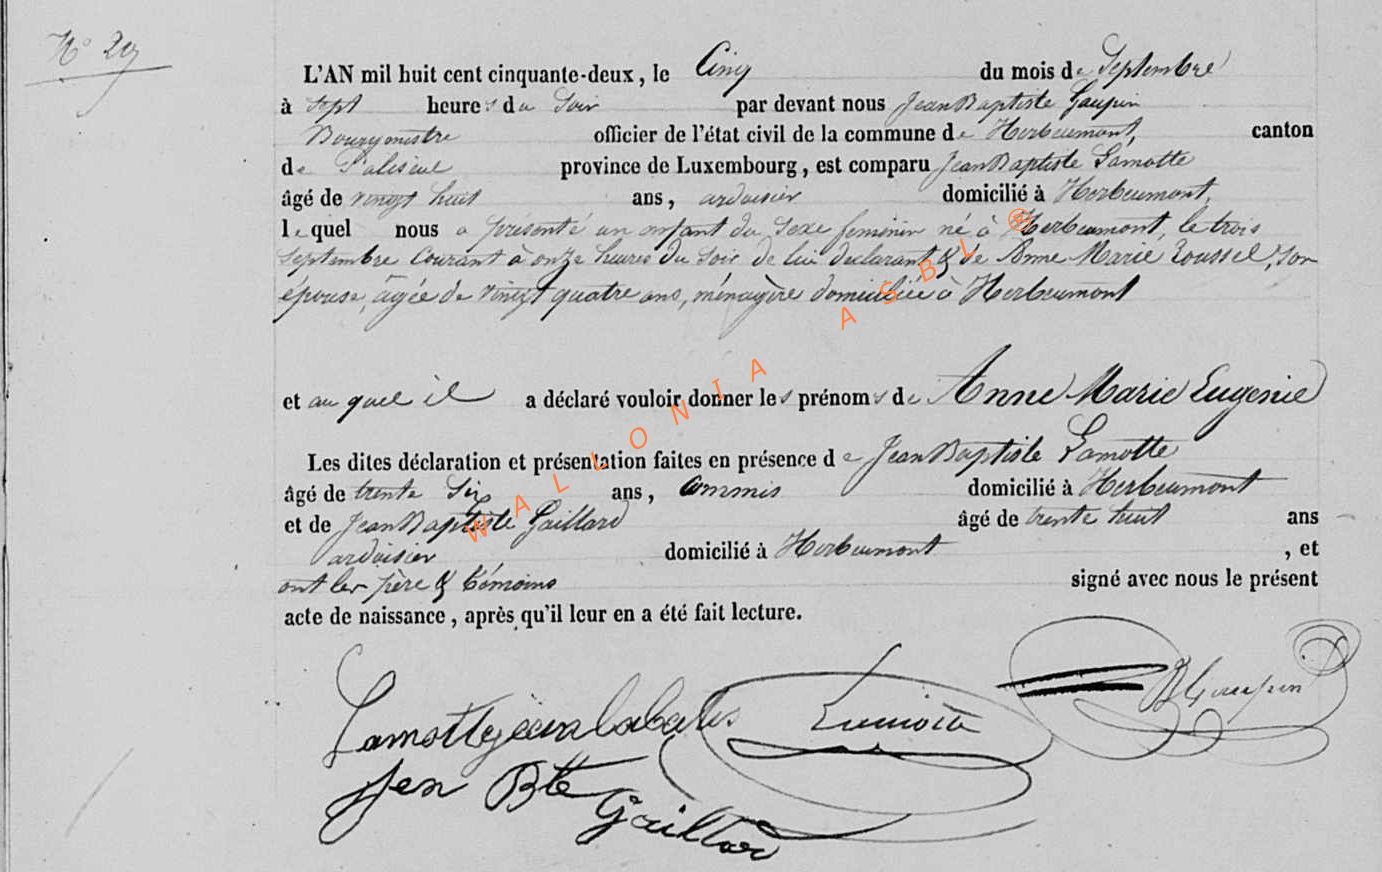 N° 29
L'AN mil huit cent cinquante-deux, le Cinq du mois de Septembre
à sept heures du soir par devant nous Jean Baptiste Gaupin
Bourgmestre officier de l'état civil de la commune de Herbeumont, canton
de Paliseul province de Luxembourg, est comparu Jean Baptiste Lamotte
âgé de vingt huit ans, ardoisier domicilié à Herbeumont,
lequel nous a présenté un enfant du sexe feminin né à Herbeumont, le trois
septembre courant à onze heures du soir de lui declarant & de Anne Marie Roussel, son
épouse, âgée de vingt quatre ans, ménagère domiciliée à Herbeumont
et au quel il a déclaré vouloir donner les prénoms de Anne Marie Eugenie
Les dites déclaration et présentation faites en présence de Jean Baptiste Lamotte
âgé de trente six ans, Commis domicilié à Herbeumont
et de Jean Baptiste Gaillard âgé de trente huit ans
ardoisier domicilié à Herbeumont, et
ont les père & témoins signé avec nous le présent
acte de naissance, après qu'il leur en a été fait lecture.
Lamotte
Jen Bte Gaillard
WALLONIA ASBL ®